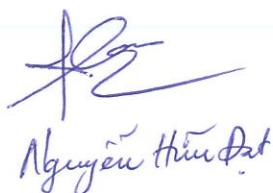 Nguyễn Hữu Đạt